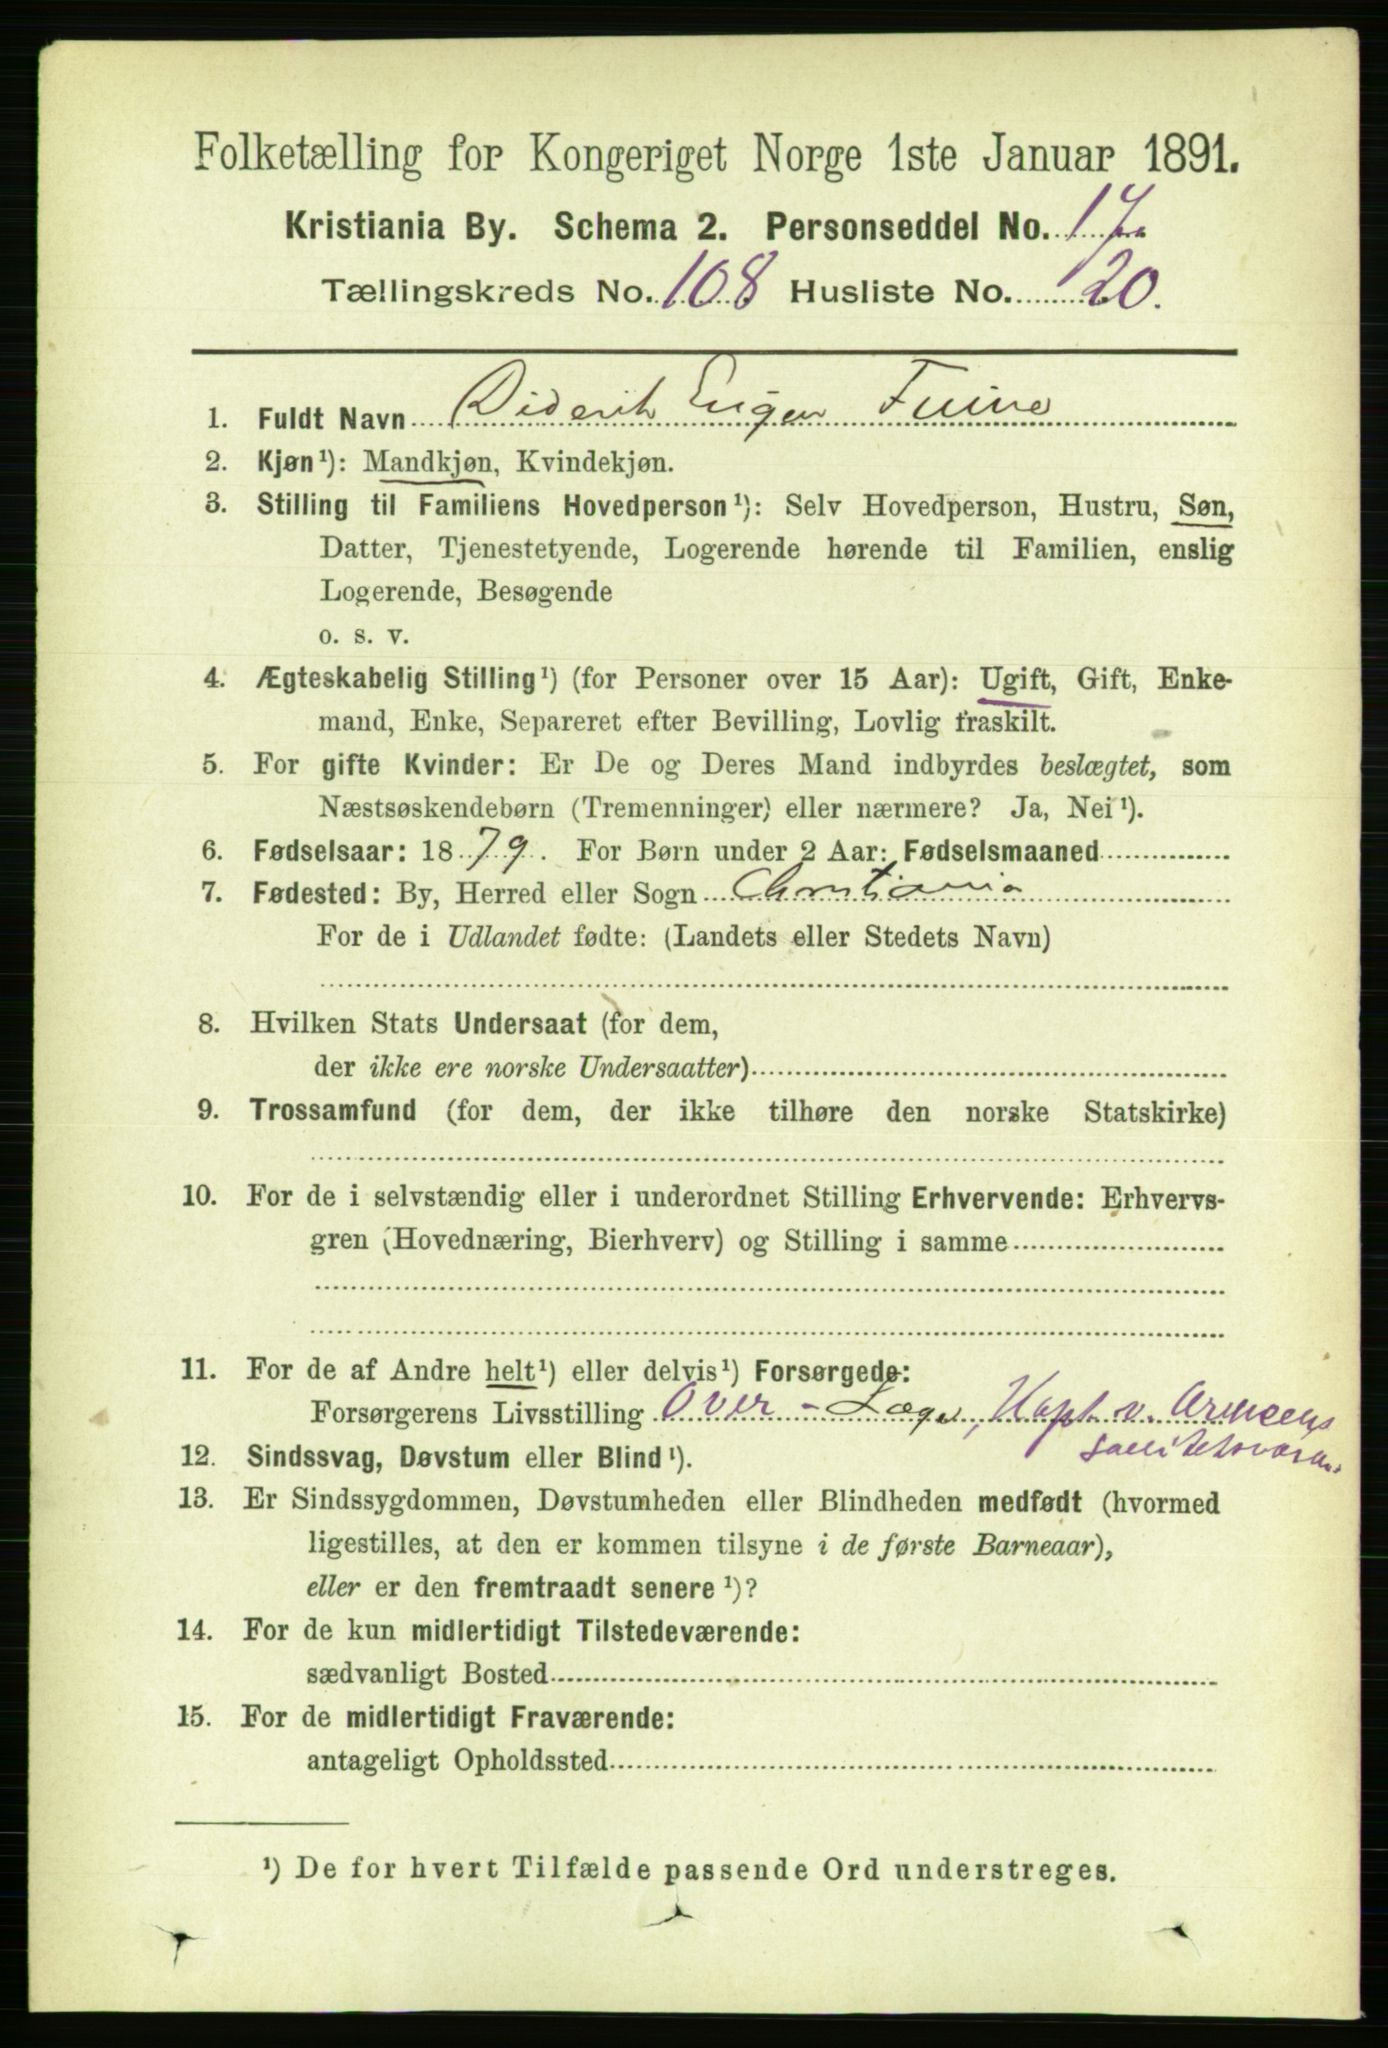 Folketælling for Kongeriget Norge 1ste Januar 1891.
Kristiania By. Schema 2. Personseddel No. 17
Tællingskreds No. 108 Husliste No. 20.
1. Fuldt Navn Diderik Eugen
2. Kjøn¹): Mandkjøn, Kvindekjøn.
3. Stilling til Familiens Hovedperson¹): Selv Hovedperson, Hustru, Søn,
Datter, Tjenestetyende, Logerende hørende til Familien, enslig
Logerende, Besøgende
o. s. v.
4. Ægteskabelig Stilling¹) (for Personer over 15 Aar): Ugift, Gift, Enke-
mand, Enke, Separeret efter Bevilling, Lovlig fraskilt.
5. For gifte Kvinder: Er De og Deres Mand indbyrdes beslægtet, som
Næstsøskendebørn (Tremenninger) eller nærmere? Ja, Nei¹).
6. Fødselsaar: 1879. For Børn under 2 Aar: Fødselsmaaned
7. Fødested: By, Herred eller Sogn Christiania
For de i Udlandet fødte: (Landets eller Stedets Navn)
8. Hvilken Stats Undersaat (for dem,
der ikke ere norske Undersaatter)
9. Trossamfund (for dem, der ikke tilhøre den norske Statskirke)
10. For de i selvstændig eller i underordnet Stilling Erhvervende: Erhvervs-
gren (Hovednæring, Bierhverv) og Stilling i samme
11. For de af Andre helt¹) eller delvis¹) Forsørgede:
Forsørgerens Livsstilling Over-Læge, Kapt. v. Armeens
12. Sindssvag, Døvstum eller Blind¹).
13. Er Sindssygdommen, Døvstumheden eller Blindheden medfødt (hvormed
ligestilles, at den er kommen tilsyne i de første Barneaar),
eller er den fremtraadt senere¹)?
14. For de kun midlertidigt Tilstedeværende:
sædvanligt Bosted
15. For de midlertidigt Fraværende:
antageligt Opholdssted
¹) De for hvert Tilfælde passende Ord understreges.